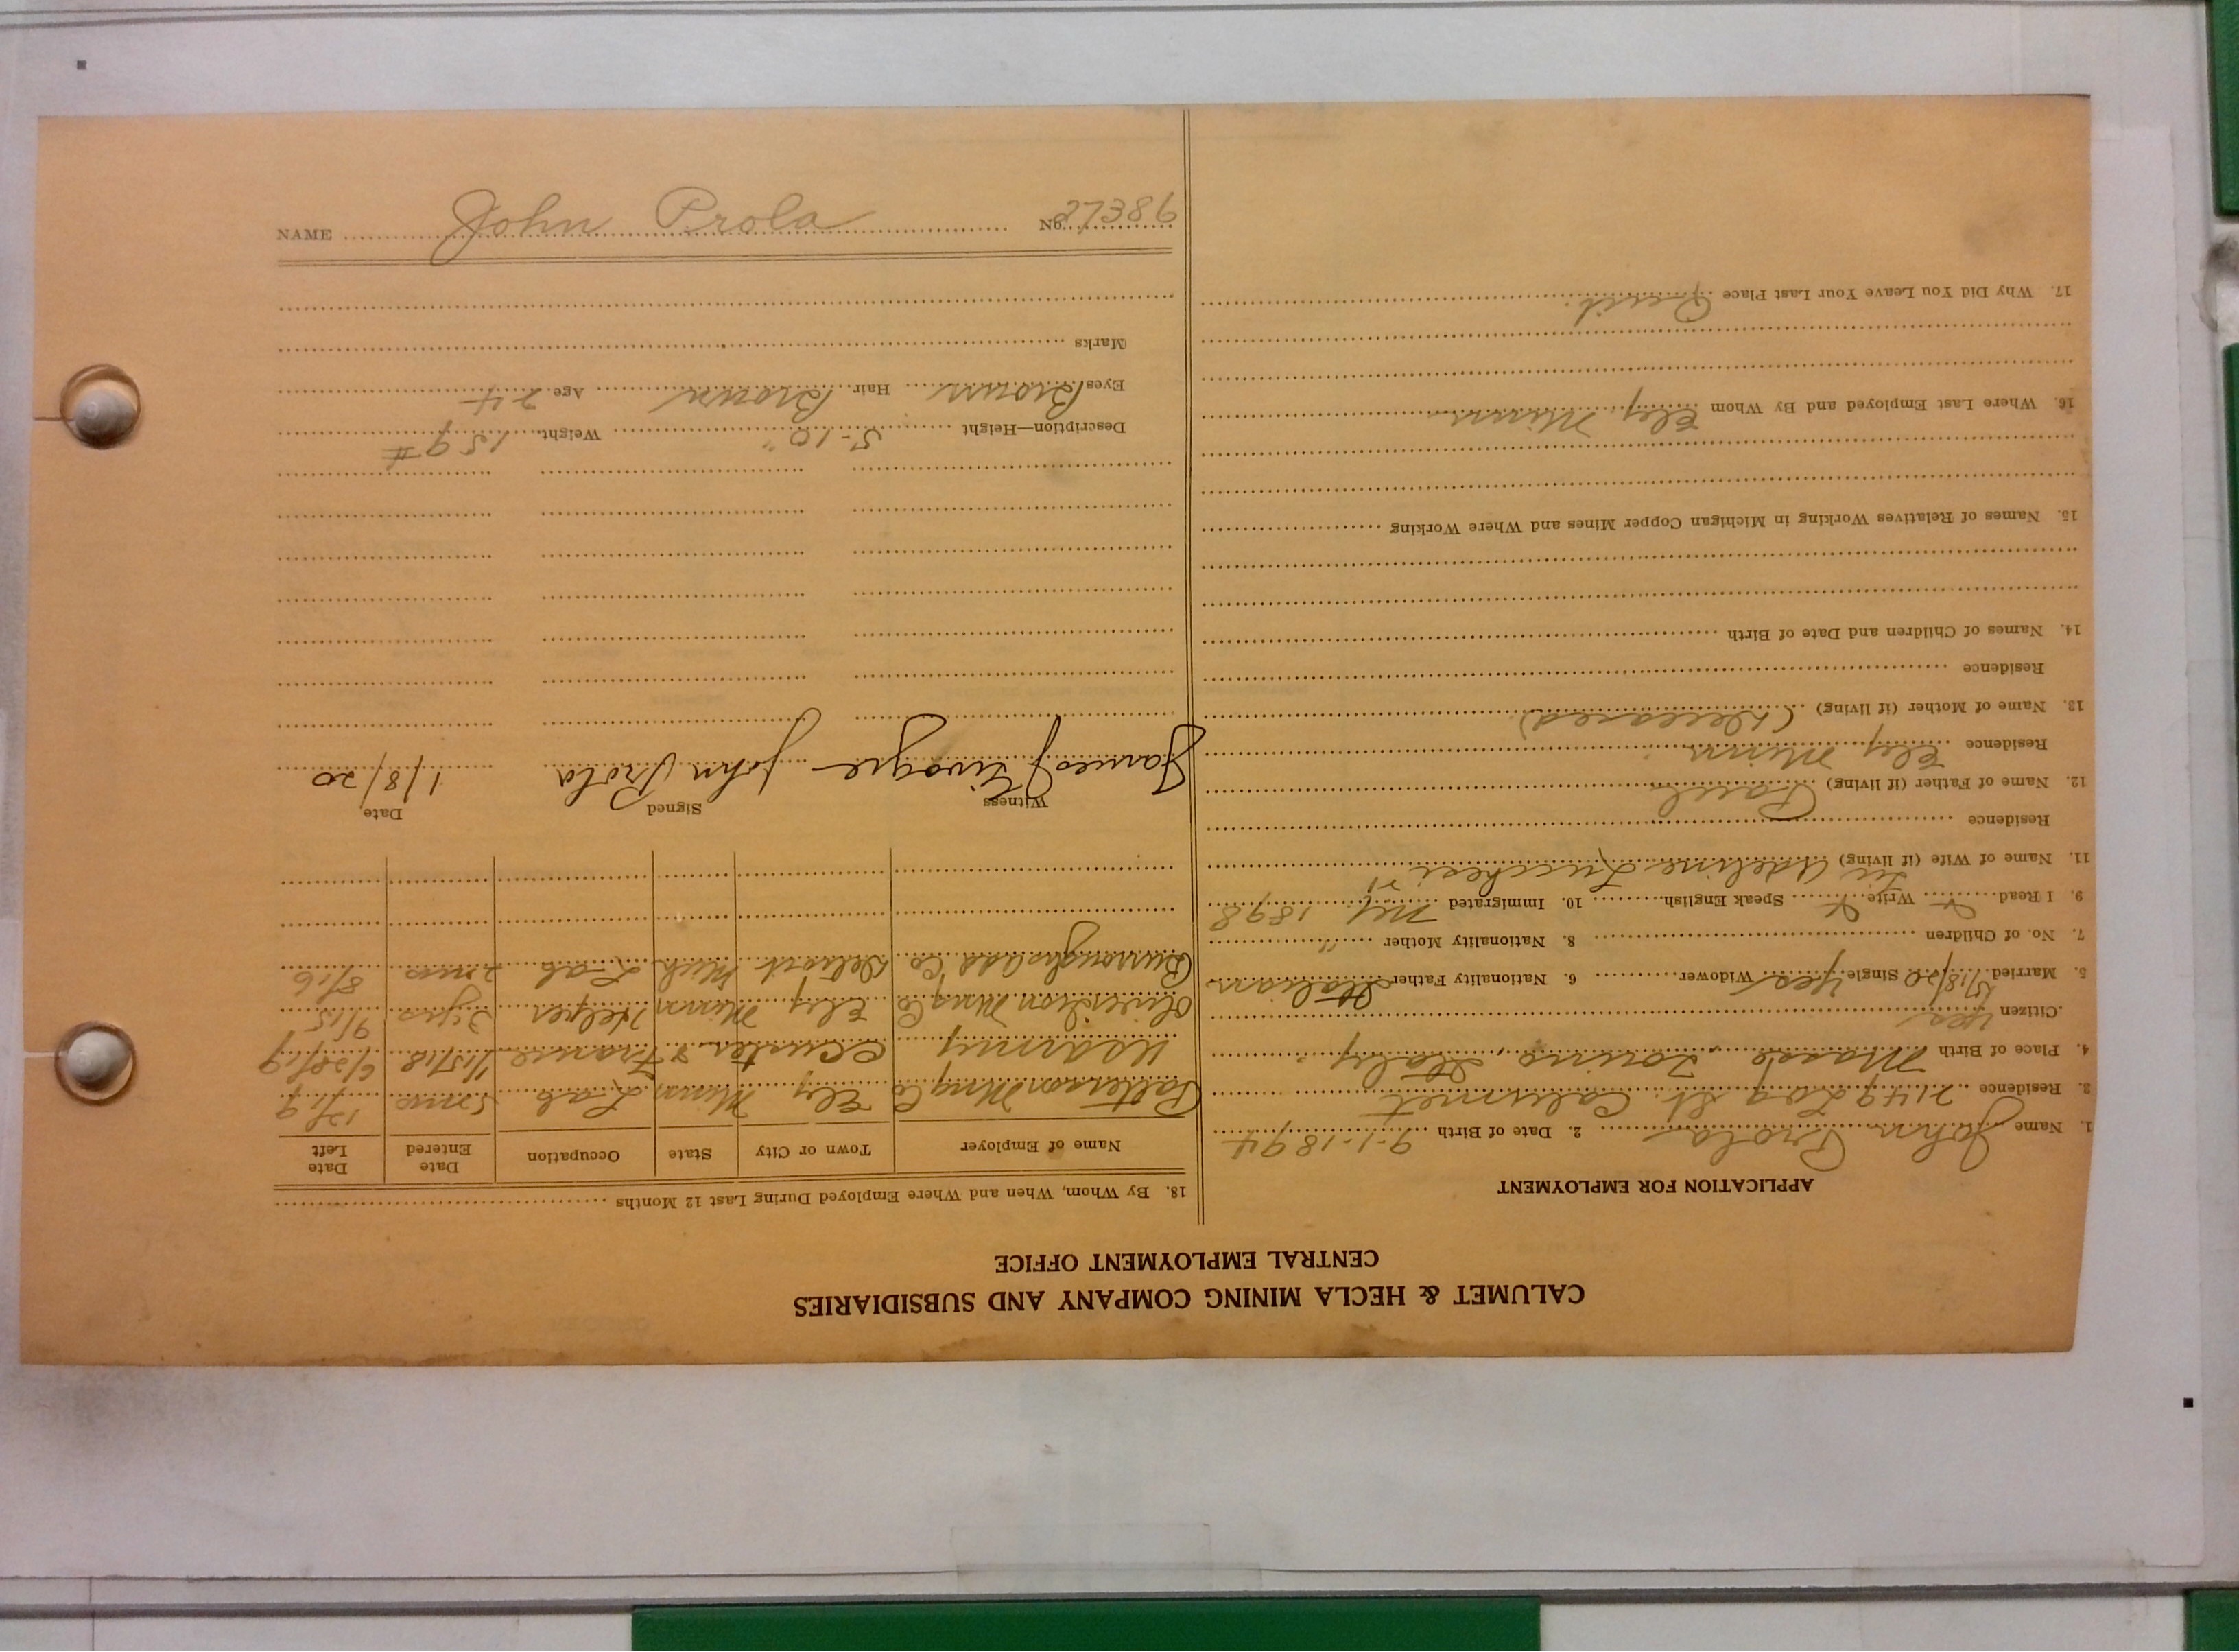 CALUMET & HECLA MINING COMPANY AND SUBSIDIARIES
CENTRAL EMPLOYMENT OFFICE
APPLICATION FOR EMPLOYMENT
1. Name John Prola 2. Date of Birth 9-1-1894
3. Residence 2149 Log St. Calumet
4. Place of Birth Torino, Italy
Citizen yes
5. Married Single yes Widower 6. Nationality Father Italian
7. No. of Children 8. Nationality Mother "
9. I Read Write Speak English 10. Immigrated N.Y. 1898
11. Name of Wife (if living) Adeline Lucchesi
Residence
12. Name of Father (if living) Paul
Residence Ely Minn.
13. Name of Mother (if living) (Deceased)
Residence
14. Names of Children and Date of Birth
15. Names of Relatives Working in Michigan Copper Mines and Where Working
16. Where Last Employed and By Whom Ely Minn
17. Why Did You Leave Your Last Place Quit.
18. By Whom, When and Where Employed During Last 12 Months
Name of Employer Town or City State Occupation Date Entered Date Left
Patterson Mng Co Ely Minn Lab 5 mos 12/19
U.S. army France 1/15/18 6/28/19
Oliver Iron Mng Co Ely Minn Helper 3 yrs 9/15
Burroughs add Co Detroit Mich Lab 2 mos 8/16
Witness Signed Date
James J John Prola 1/8/20
Description—Height 5-10" Weight 159 #
Eyes Brown Hair Brown Age 24
Marks
NAME John Prola No. 27386